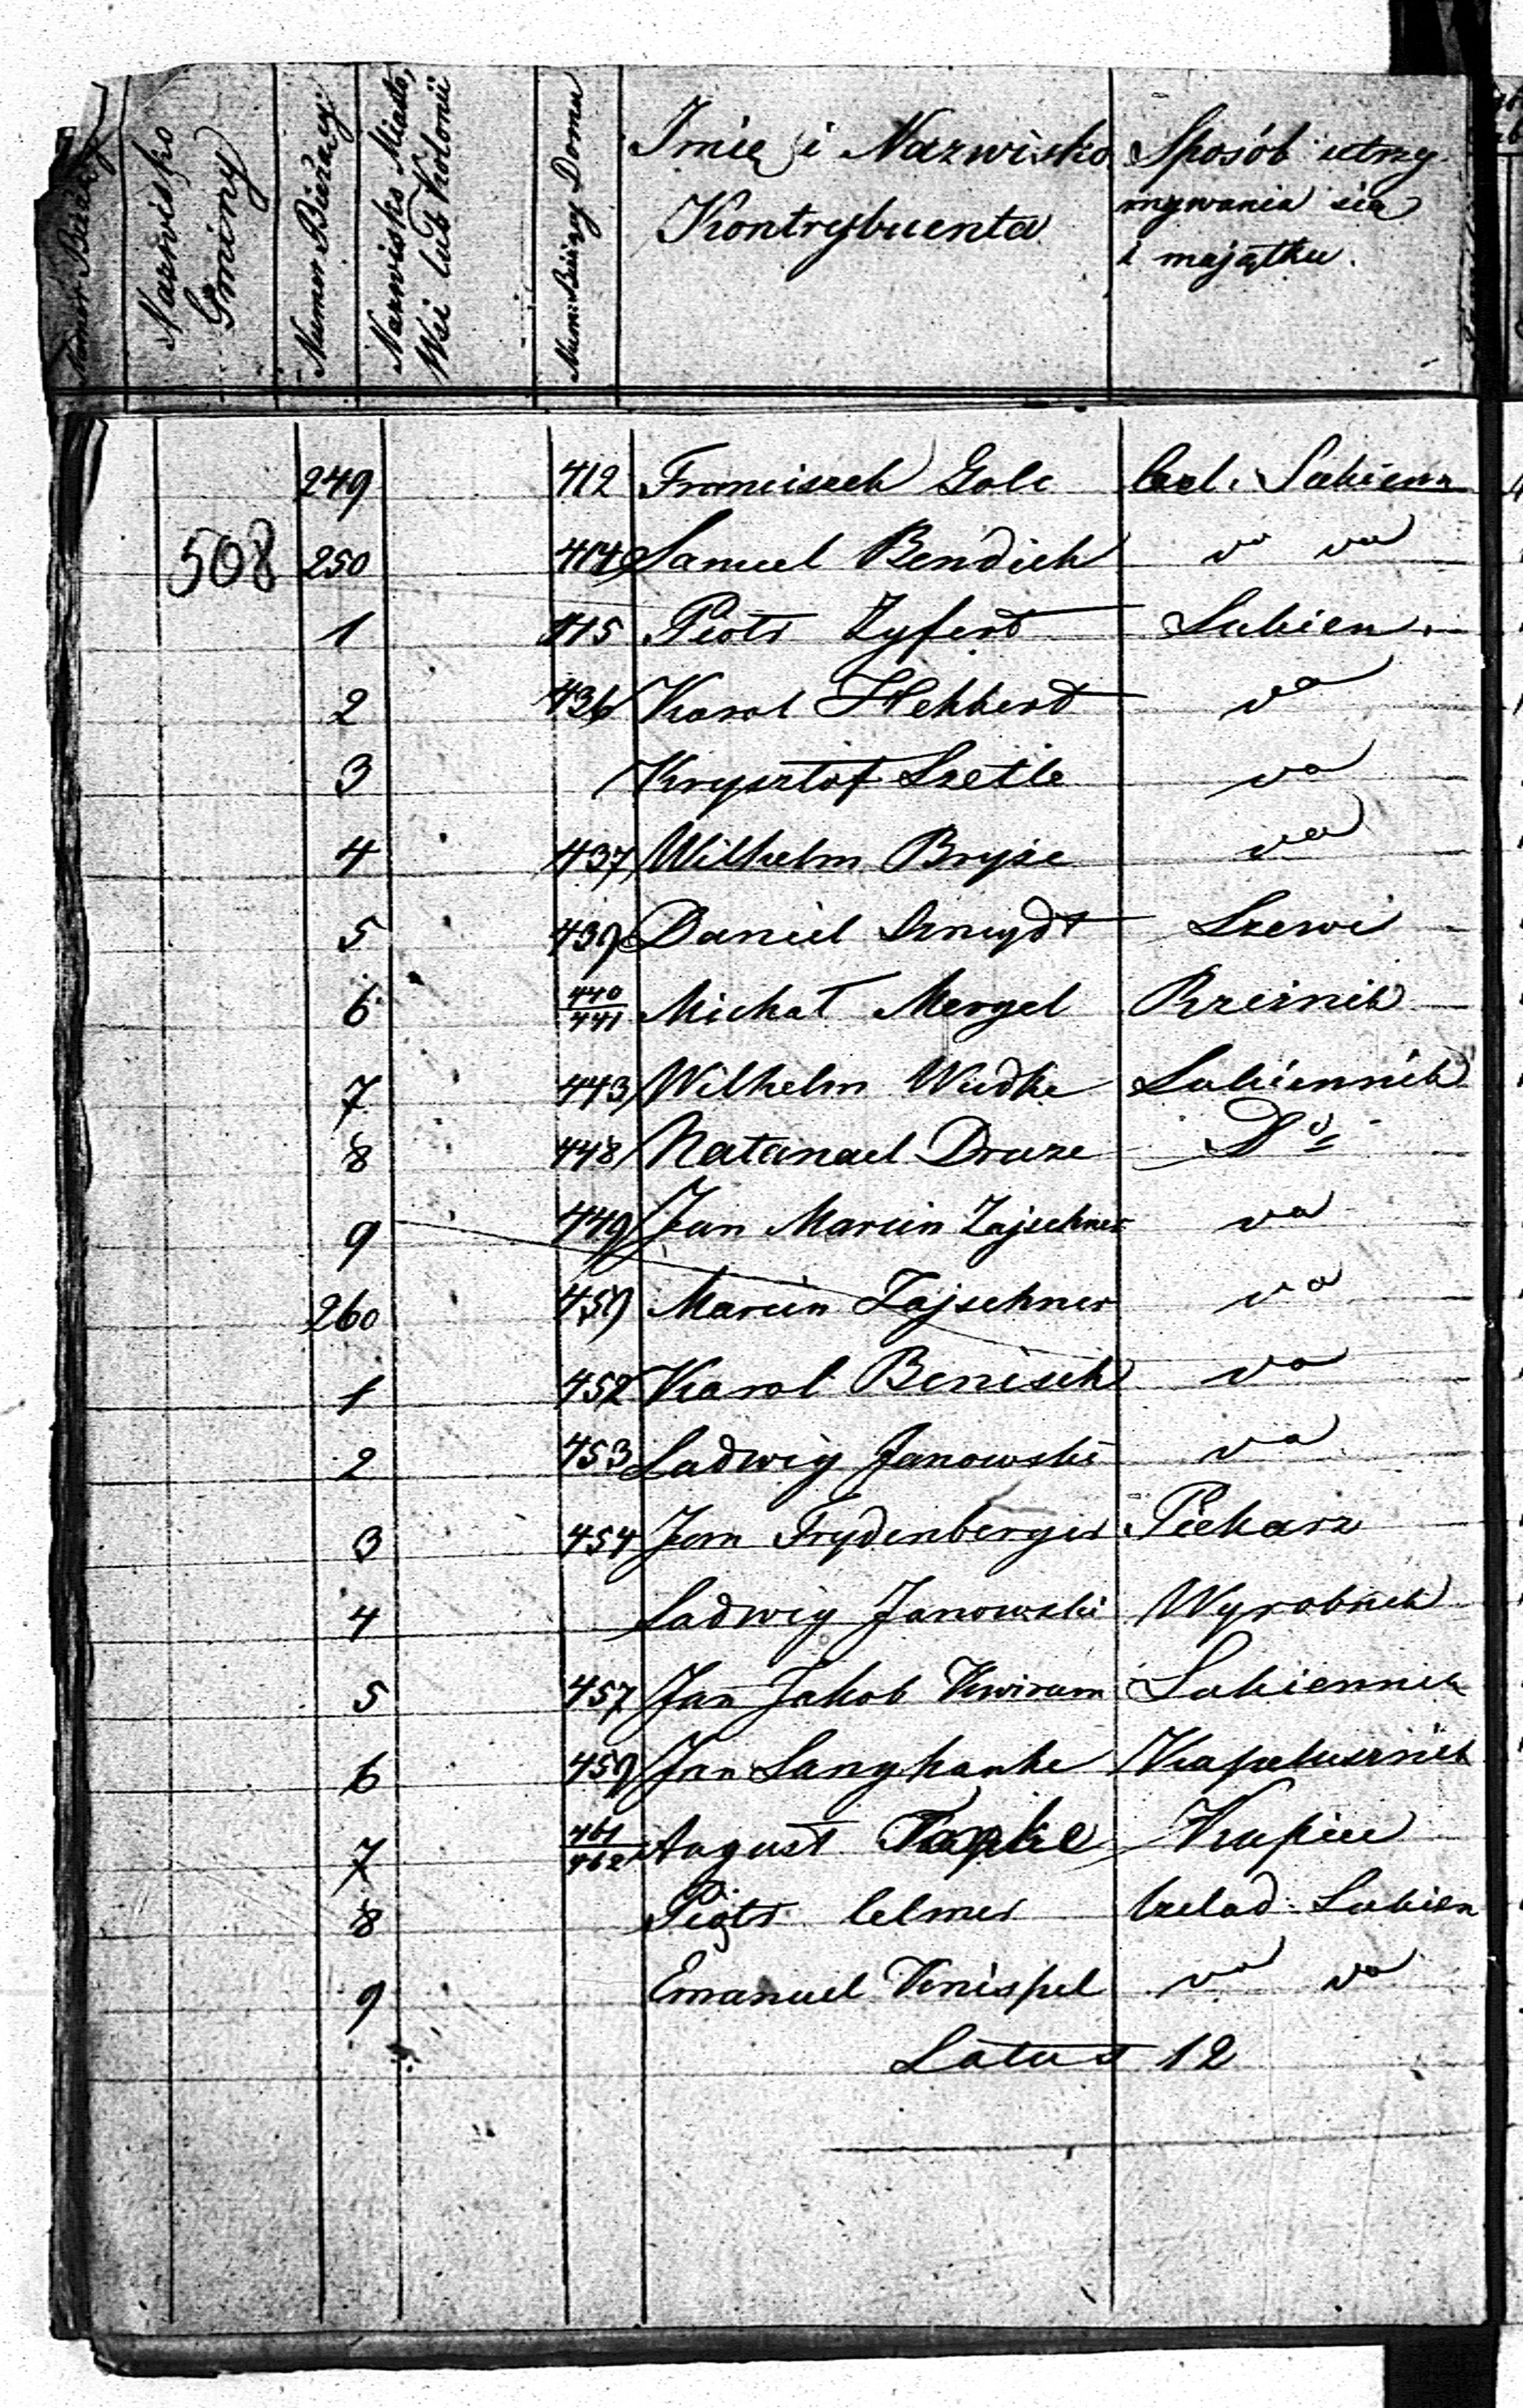 Numer Bieżący
Nazwisko Gminy
Numer Bieżący
Nazwisko Miasta, Wsi lub Kolonii
Num: Bieżący Domu
Imie i Nazwisko Kontrybuenta
Sposób utrzymywania się i majątku.
249 412 Franciszek Golc Czel. Sukienn
508 250 414 Samuel Bendich va va
1 415 Piotr Zyfert Sukien.
2 436 Karol Hekkert va
3 Krysztof Szetle va
4 437 Wilhelm Bryże va
5 439 Daniel Szmydt Szewc
6 440/441 Michał Mergel Rzeźnik
7 443 Wilhelm Wudke Sukiennik
8 448 Natanael Druze Do
9 449 Jan Marcin Zajschner va
260 450 Marcin Zajschner va
1 452 Karol Benisch va
2 453 Ludwig Janowski va
3 454 Jan Frydenberger Piekarz
4 Ludwig Janowski Wyrobnik
5 457 Jan Jakob Kwiram Sukiennik
6 459 Jan Langhanke Kapelusznik
7 461/462 August Kupiec
8 Piotr Celmer Czelad. Sukien
9 Emanuel Knispel va va
Latus 12